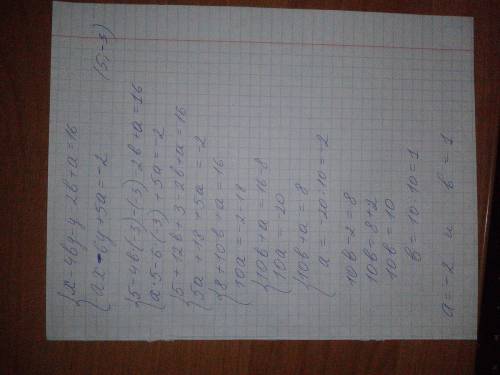 {x-4by-y-2b+a=16
{ax-6y+5a=-2 (5;-3)
{5-4b(-3)-(-3)-2b+a=16
{a·5-6·(-3)+5a=-2
{5+12b+3-2b+a=16
{5a+18+5a=-2
{8+10b+a=16
{10a=-2-18
{10b+a=16-8
{10a=-20
{10b+a=8
{a=-20:10=-2
10b-2=8
10b=8+2
10b=10
b=10:10=1
a=-2 и b=1